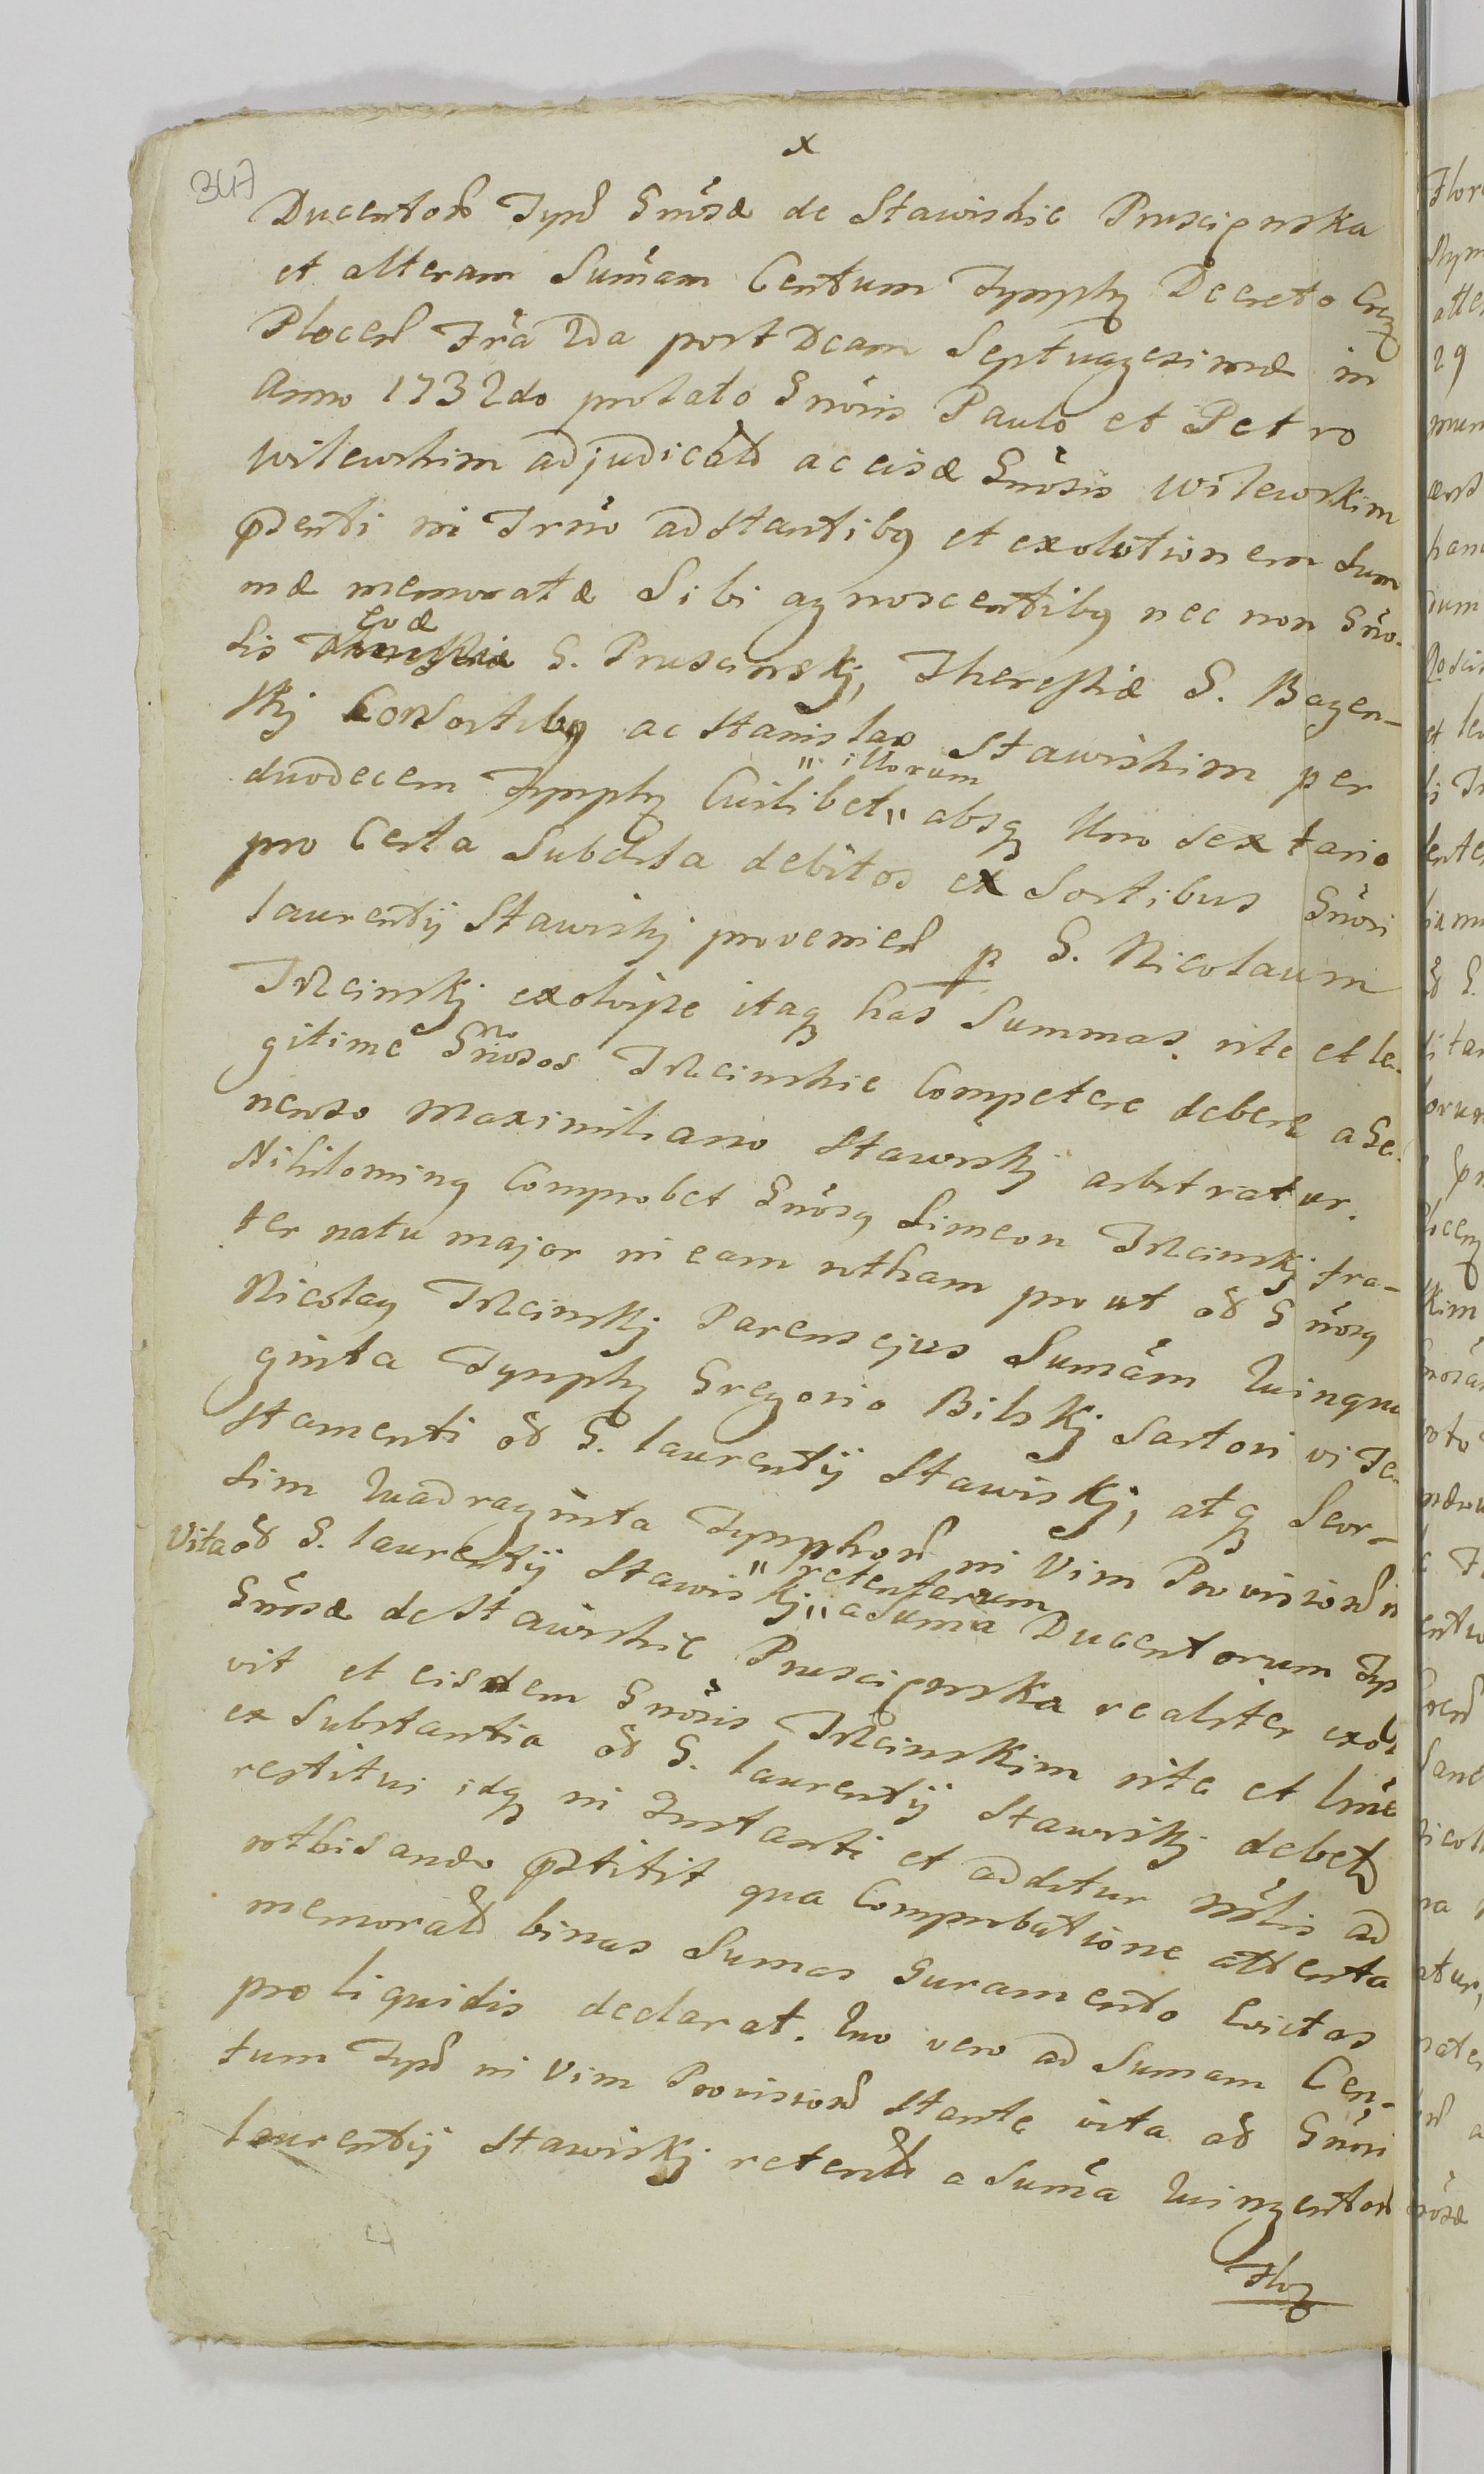 x
347
Ducentor Typ Gnosæ de Stawiskie Pruscięnska
et alteram Sum̃am Centum Tymphy Decreto
Plocen Fr̃a 2da post Dcam Septuagesimæ in
Anno 1732do prolato Gnosis Paulo et Petro
Wilewskim adjudicat ac eisæ Gnosis Wilewskim
p̃denti in Trno adstantibq et exolutionem Sum
mæ memoratæ Sibi agnoscentibq nec non Gno-
Evæ
sis G. Pruscinskj, Theressiæ G. Bagen-
skj Consortibq ac Stanislao Stawiskim per
" illorum
duodecem Tymphy Cuilibet " absq Uno Sextario
pro Certa Subdita debitos ex Sortibus Gnosi
Laurentij Stawiskj provenien p G. Nicolaum
Trzcinskj exolvisse itaq has Summas, rite et le-
gitime Gnosos Trzcinskie Competere debere a Ge-
neroso Maximiliano Stawiskj arbitratur.
Nihilominq Comprobet Gnosq Simeon Trzcinskj fra-
ter natu major in eam rotham prout oð Gnosq
Nicolaq Trzcinskj Parens ejus Sum̃am Quinqua
ginta Tymphy Gregorio Bilskj Sartori vi Te-
stamenti oð G. Laurentij Stawiskj, atq Seor-
sim Quadraginta Tymphor in Vim Provision
Vita oð G. Laurentij Stawiskj " a Sum̃a Ducentorum Typ
" retentarum
Gnosæ de Stawiskie Pruscięnska realiter exol
vit et eisdem Gnosis Trzcinskim rite et
ex Substantia oð G. Laurentij Stawiskj debet
restitui idq in Instanti et additur ad
rothisando p̃stitit qua Comprobatione attenta
memorat binas Sumas Juramento Evictas
pro liquidis declarat. Quo vero ad Sumam Cen-
tum Typ in Vim Provision Stante vita oð Gnosi
Laurentij Stawiskj retent a Sum̃a Quingentor